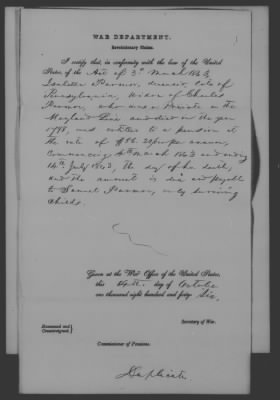 WAR DEPARTMENT.
Revolutionary Claim.
I certify that, in conformity with the law of the United
States, of the Act of 3d March 1843
deceased, late of
Pennsylvania, Widow of Charles
who was a Private in the
Maryland Line and died in the year
1798, was entitled to a pension at
the rate of per annum,
Commencing 4th March 1843 and ending
14th July 1843, the day of her death,
and the amount is due and payable
to Samuel only surviving
child.
Given at the War Office of the United States,
this day of October
one thousand eight hundred and forty Six.
Examined and
Countersigned
Secretary of War.
Commissioner of Pensions.
Duplicate